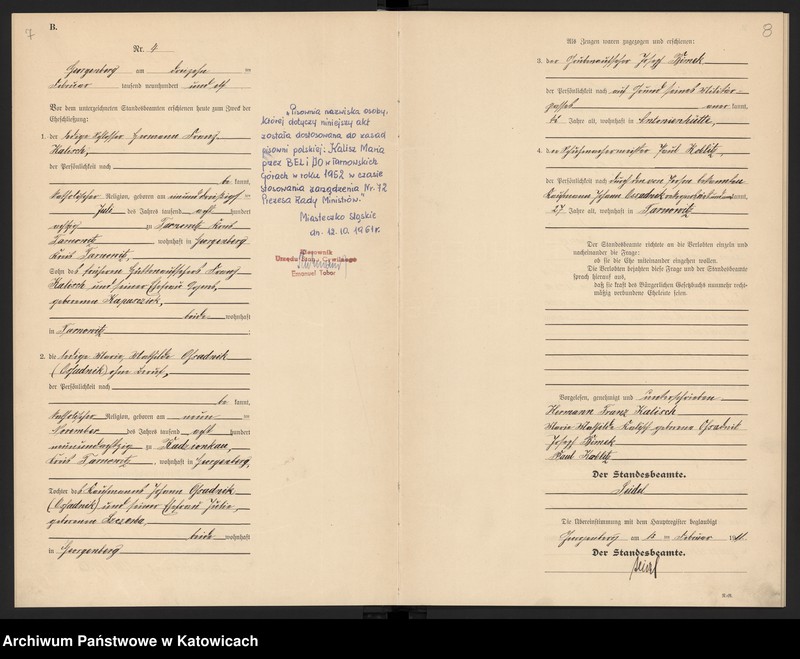 7
B.
Nr. 4
Georgenberg am dreizehn ten
Februar tausend neunhundert und elf
Vor dem unterzeichneten Standesbeamten erschienen heute zum Zweck der
Eheschließung:
1. der ledige Schlosser Hermann Franz
Kalisch,
der Persönlichkeit nach
be kannt,
katholischer Religion, geboren am
Juli des Jahres tausend acht hundert
achtzig zu Tarnowitz Kreis
Tarnowitz, wohnhaft in Georgenberg
Kreis Tarnowitz,
Sohn des Franz
Kalisch und seiner Ehefrau
geborenen
beide wohnhaft
in Tarnowitz
2. die ledige Maria Mathilde Osradnik
(Osadnik) ohne Beruf,
der Persönlichkeit nach
be kannt,
katholischer Religion, geboren am neun ten
November des Jahres tausend acht hundert
neunundachtzig zu Radzionkau,
Kreis Tarnowitz, wohnhaft in Georgenberg,
Tochter des Kaufmanns Johann Osradnik
(Osadnik) und seiner Ehefrau Julie,
geborenen
beide wohnhaft
in Georgenberg
„Pisownia nazwiska osoby,
której dotyczy niniejszy akt
została dostosowana do zasad
pisowni polskiej: Kalisz Maria
przez BEL i DO w Tarnowskich
Górach w roku 1952 w czasie
stosowania zarządzenia Nr. 72
Prezesa Rady Ministrów."
Miasteczko Śląskie
dn. 12.10.1961r.
Kierownik
Urzędu Stanu Cywilnego
Emanuel Tobor
8
Als Zeugen waren zugezogen und erschienen:
3. der Josef
der Persönlichkeit nach auf Grund seines Militär-
passes aner kannt,
Jahre alt, wohnhaft in Antonienhütte,
4. der Schuhmachermeister Paul
der Persönlichkeit nach durch den von Person bekannten
Kaufmann Johann Osradnik kannt,
27 Jahre alt, wohnhaft in Tarnowitz
Der Standesbeamte richtete an die Verlobten einzeln und
nacheinander die Frage:
ob sie die Ehe miteinander eingehen wollen.
Die Verlobten bejahten diese Frage und der Standesbeamte
sprach hierauf aus,
daß sie kraft des Bürgerlichen Gesetzbuchs nunmehr recht-
mäßig verbundene Eheleute seien.
Vorgelesen, genehmigt und unterschrieben
Hermann Franz Kalisch
Maria Mathilde Kalisch geborene Osradnik
Josef
Paul
Der Standesbeamte.
Seidel
Die Übereinstimmung mit dem Hauptregister beglaubigt
Georgenberg am ten Februar 1911
Der Standesbeamte.
Seidel
Archiwum Państwowe w Katowicach